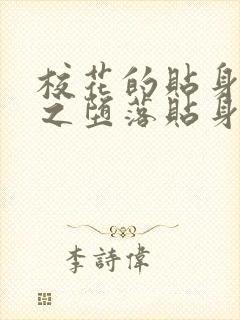 校花的貼身
之墮落貼身
李詩偉